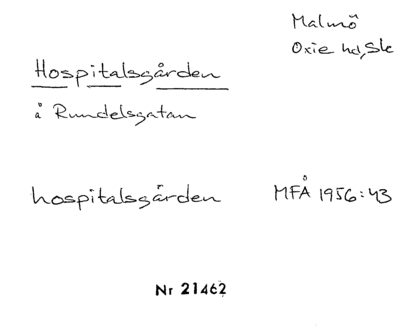 Malmö
Oxie hd, Sk
Hospitalsgården
å Rundelsgatan
hospitalsgården MFÅ 1956:43
Nr 21462